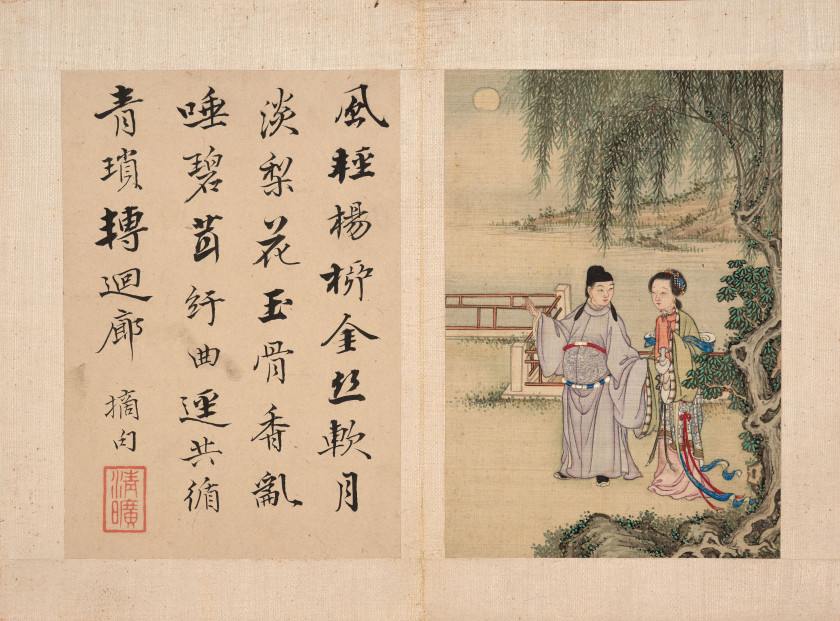 風輕楊柳金絲軟月
淡梨花玉骨香亂
唾碧茸紆曲逕共循
青瑣轉迴廊
摘句
清曠